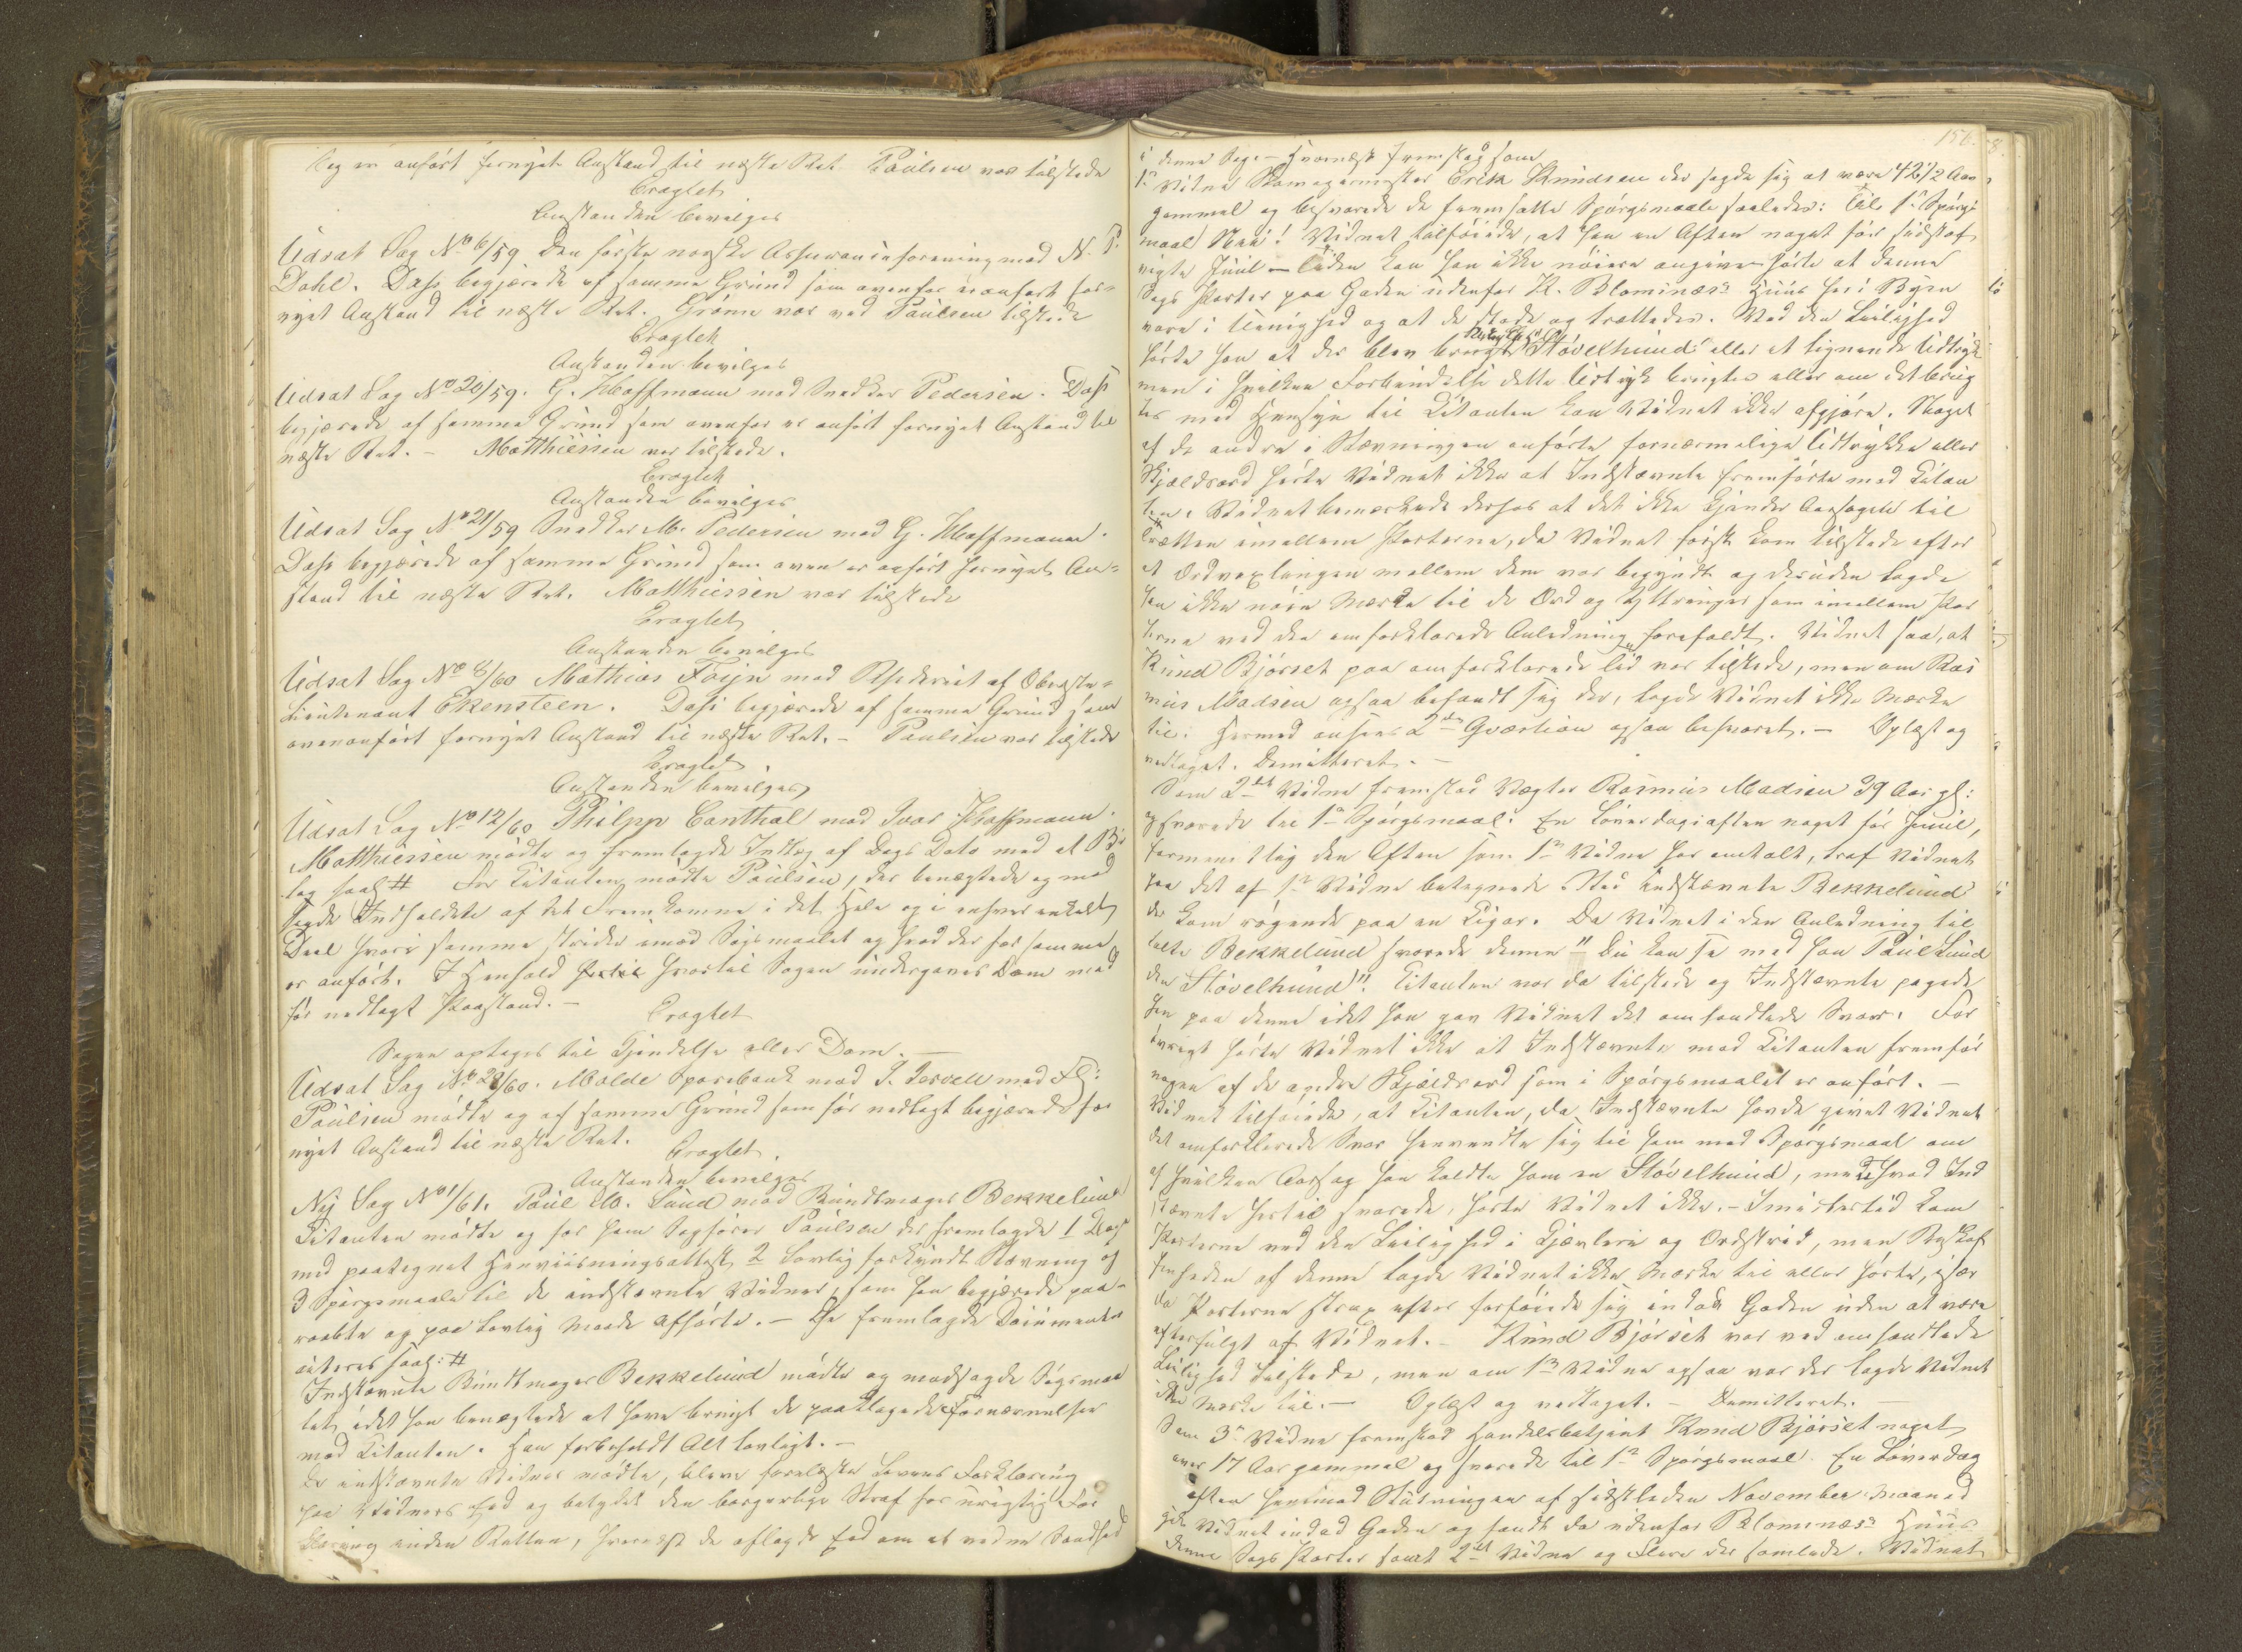 leg er anført fornyet Anstand til næste Ret. Paulsen var tilstede
Eragtet
Anstanden bevilges
Udsat Sag No 6/59 Den første norske Assuranceforening mod N. P.
Dahl. Dass begjærede af samme Grund som ovenfor er anført for-
nyet Anstand til næste Ret. Grønn var ved Paulsen tilstede
Eragtet
Anstanden bevilges
Udsat Sag No 20/59. G. Hoffmann mod Snedker Pedersen. Dass
begjærede af samme Grund som ovenfor er anført fornyet Anstand til
næste Ret. - Matthiessen var tilstede.
Eragtet
Anstanden bevilges
Udsat Sag No 21/59 Snedker M. Pedersen mod G. Hoffmann.
Dass begjærede af samme Grund som oven er anført fornyet An-
stand til næste Ret. Matthiessen var tilstede
Eragtet
Anstanden bevilges
Udsat Sag No 8/60 Mathias Foijn mod af Oberst-
Lieutenant Ekensteen. Dass begjærede af samme Grund som
ovenanført fornyet Anstand til næste Ret. - Paulsen var tilstede
Eragtet
Anstanden bevilges
Udsat Sag No 12/60 Philpp Canthal mod Ivar Hoffmann.
Matthiessen mødte og fremlagde Indlæg af Dags Dato med et Bi-
lag saal. # For Citanten mødte Paulsen, der benægtede og mod
sagde Indholdet af det Fremkomne i det Hele og i enhver enkelt
Deel hvori samme strider imod Søgsmaalet og hvad der for samme
er anført. I Henhold hertil hvortil Sagen undergaves Dom med
før nedlagt Paastand. -
Eragtet
Sagen optages til Kjendelse eller Dom. -
Udsat Sag No 28/60. Molde Sparebank mod P. Tervell med Fl:
Paulsen mødte og af samme Grund som før nedlagt begjærede for
nyet Anstand til næste Ret.
Eragtet.
Anstanden bevilges
Ny Sag No 1/61. Paul O. Lund mod Bundtmager Bekkelund
Citanten mødte og for ham Sagfører Paulsen der fremlagde 1 Klage
med paategnet Henviisningsattest 2 Lovlig forkyndt Stævning og
3 Spørgsmaale til de indstævnte Vidner, som han begjærede paa-
raabte og paa lovlig Maade afhørte. - De fremlagde Documenter
saal: #
Indstævnte Bundtmager Bekkelund mødte og modsagde Søgsmaa
let, idet han benægtede at have brugt de paaklagede Fornærmelser
mod Citanten. Han forbeholdt Alt lovligt. -
De indstævnte Vidner mødte, bleve forelæste Lovens Forklaring
paa Vidners Eed og betydet den borgerlige Straf for urigtig For
klaring inden Retten, hvornæst de aflagde Eed om at vidne Sandhed
156.
i denne Sag. - Hvornæst fremstod som
1e Vidne Skomagermester Erik Knudsen der sagde sig at være 42 1/2 Aar
gammel og besvarede de fremsatte Spørgsmaale saaledes: Til 1e Spørgs
maal Nei! Vidnet tilføiede, at han en Aften noget før sidstaf
vigte Juul - Tiden kan han ikke nøiere angive - hørte at denne
Sags Parter paa Gaden udenfor K. Blominæs's Huus her i Byen
vare i Uenighed og at de stode og trættedes. Ved den Leilighed
hørte han at der blev brugt "Støvelhund" eller et lignende Udtryk
men i hvilken Forbindelse dette Udtryk brugtes eller om det brug
tes med Hensyn til Citanten kan Vidnet ikke afgjøre. Noget
af de andre i Stævningen anførte fornærmelige Udtrykke eller
Skjældsord hørte Vidnet ikke at Indstævnte fremførte mod Citan
ten. Vidnet bemærkede derhos at det ikke kjender Aarsagen til
Trætten imellem Parterne, da Vidnet først kom tilstede efter
at Ordvexlingen mellem dem var begyndt og desuden lagde
han ikke nøie Mærke til de Ord og Yttringer som imellem Par
terne ved den omforklarede Anledning forefaldt. Vidnet saa, at
Knud Bjørset paa omforklarede Tid var tilstede, men om Ras
mus Madsen ogsaa befandt sig der, lagde Vidnet ikke Mærke
til. Hermed ansees 2den Qvæstion ogsaa besvaret. - Oplæst og
vedtaget. Demitteret. -
Som 2det Vidne fremstod Vægter Rasmus Madsen 39 Aar gl:
og svarede til 1e Spørgsmaal. En Løverdagsaften noget før Juul,
formentlig den Aften som 1e Vidne har omtalt, traf Vidnet
paa det af 1e Vidne betegnede Sted Indstævnte Bekkelund
der kom røgende paa en Cigar. Da Vidnet i den Anledning til
talte Bekkelund svarede denne "Du kan tie med han Paul Lund
den Støvelhund". Citanten var da tilstede og Indstævnte pegede
hen paa denne idet han gav Vidnet det omhandlede Svar. For
øvrigt hørte Vidnet ikke at Indstævnte mod Citanten fremfør
nogen af de andre Skjældsord som i Spørgsmaalet er anført. -
Vidnet tilføiede, at Citanten, da Indstævnte havde givet Vidnet
det omforklarede Svar henvendte sig til ham med Spørgsmaal om
af hvilken Aarsag han kaldte ham en Støvelhund, men hvad Ind
stævnte hertil svarede, hørte Vidnet ikke. - Imidlertid kom
Parterne ved den Leilighed i Kjævleri og Ordstrid, men Beskaf
fenheden af denne lagde Vidnet ikke Mærke til eller hørte, især
da Parterne strax efter forføiede sig indad Gaden uden at være
efterfulgt af Vidnet. - Knud Bjørset var ved omhandlede
Leilighed tilstede, men om 1e Vidne ogsaa var der lagde Vidnet
ikke Mærke til. - Oplæst og vedtaget. - Demitteret. -
Som 3e Vidne fremstod Handelsbetjent Knud Bjørset noget
over 17 Aar gammel og svarede til 1e Spørgsmaal. En Løverdag
aften henimod Slutningen af sidstleden November Maaned
gik Vidnet indad Gaden og fandt da udenfor Blominæs's Huus
denne Sags Parter samt 2det Vidne og Flere der samlede. Vidnet